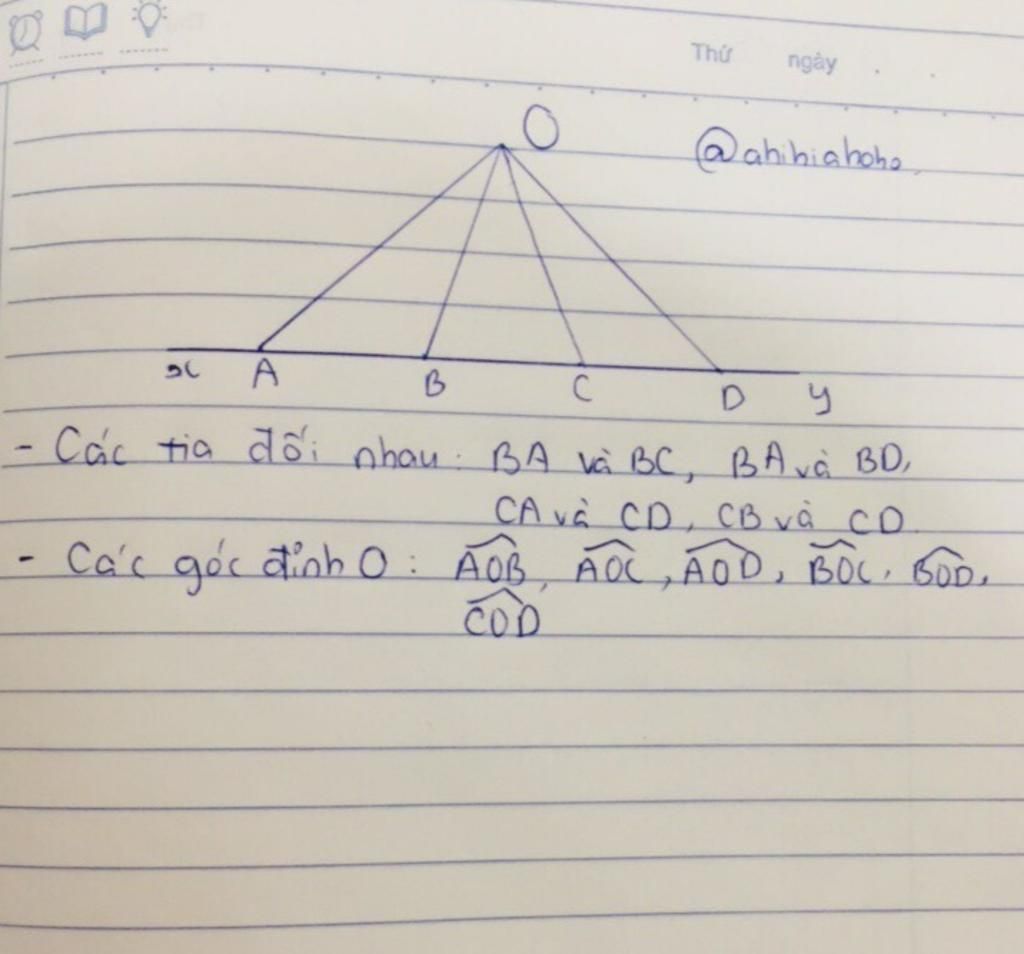 Thứ ngày
O
@ahihiahoho
x A B C D y
- Các tia đối nhau: BA và BC, BA và BD,
CA và CD, CB và CD
- Các góc đỉnh O: \widehat{AOB}, \widehat{AOC}, \widehat{AOD}, \widehat{BOC}, \widehat{BOD},
\widehat{COD}